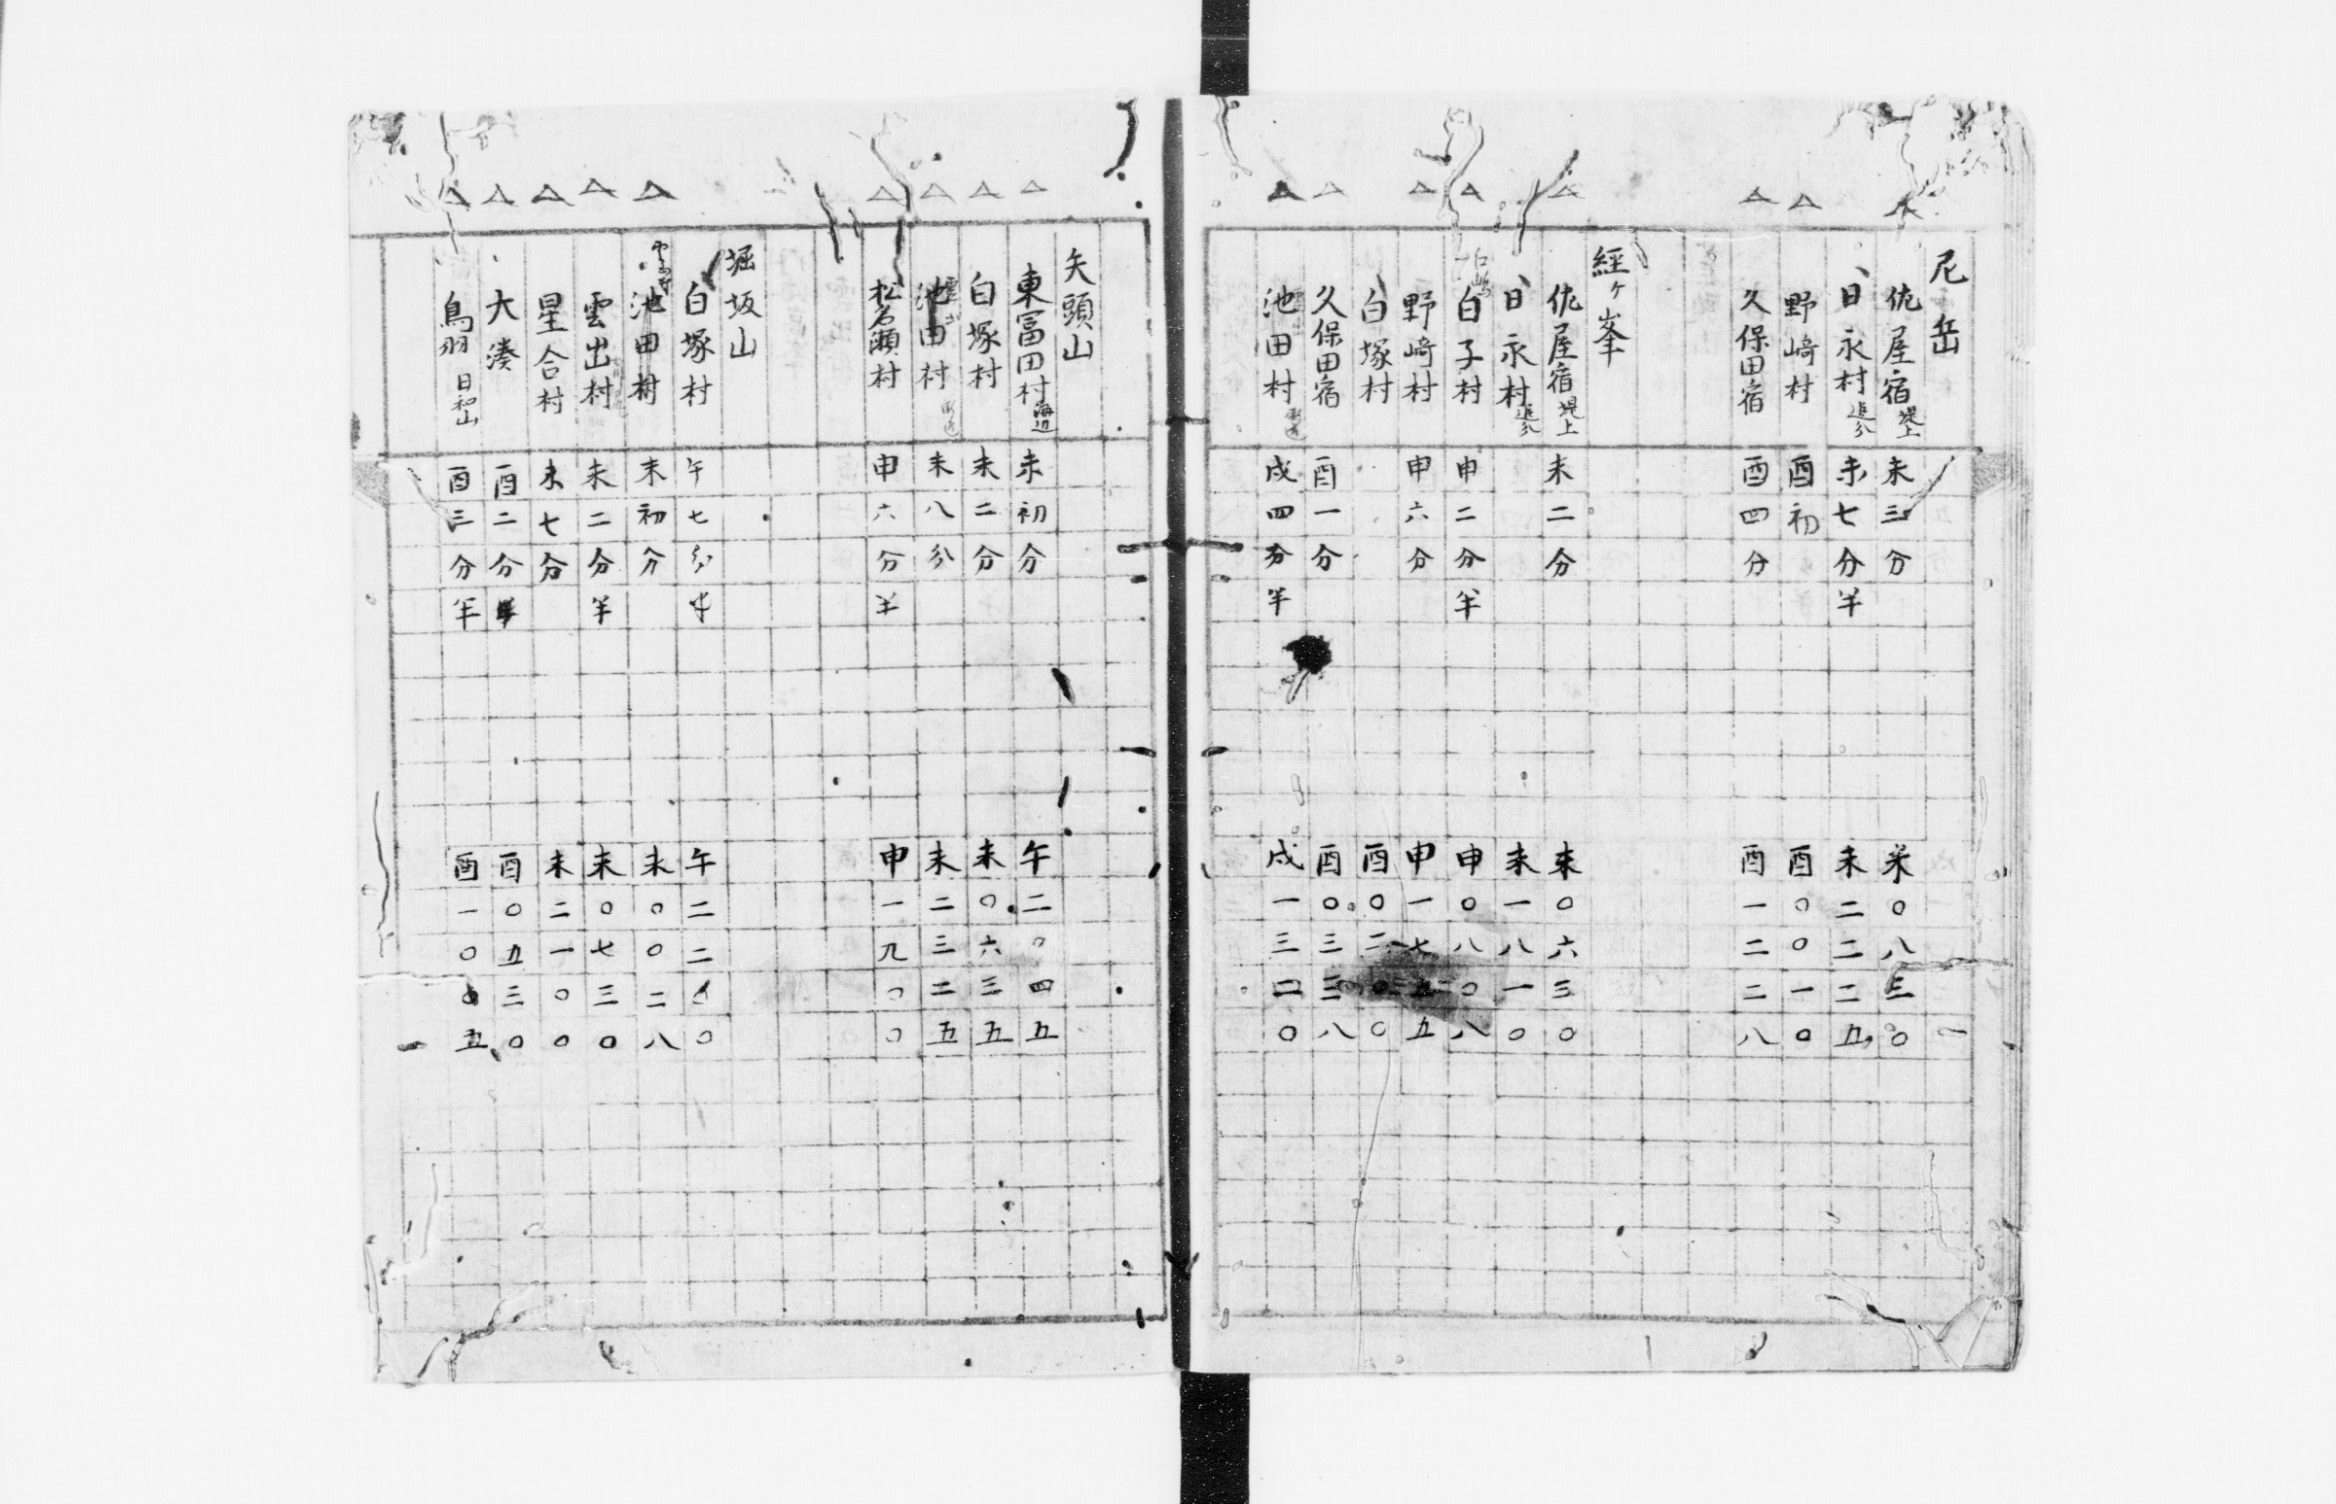 尼岳
佐屋宿 堤上 未三分 未〇八三〇
日永村 追分 未七分半 未二二二五
野崎村 酉初 酉〇〇一〇
久保田宿 酉四分 酉一二二八
經ヶ峯
佐屋宿 堤上 未二分 未〇六三〇
日永村 追分 未一八一〇
白子村 申二分半 申〇八〇八
野崎村 申六分 申一七五五
白塚村 酉〇二〇〇
久保田宿 酉一分 酉〇三三八
池田村 街道 戌四分半 戌一三二〇
矢頭山
東冨田村 海辺 未初分 午二〇四五
白塚村 未二分 未〇六三五
池田村 街道 未八分 未二三二五
松名瀬村 申六分半 申一九〇〇
堀坂山
白塚村 午七分半 午二二〇〇
池田村 未初分 未〇〇二八
雲出村 未二分半 未〇七三〇
星合村 未七分 未二一〇〇
大湊 酉二分半 酉〇五三〇
鳥羽 日和山 酉三分半 酉一〇〇五